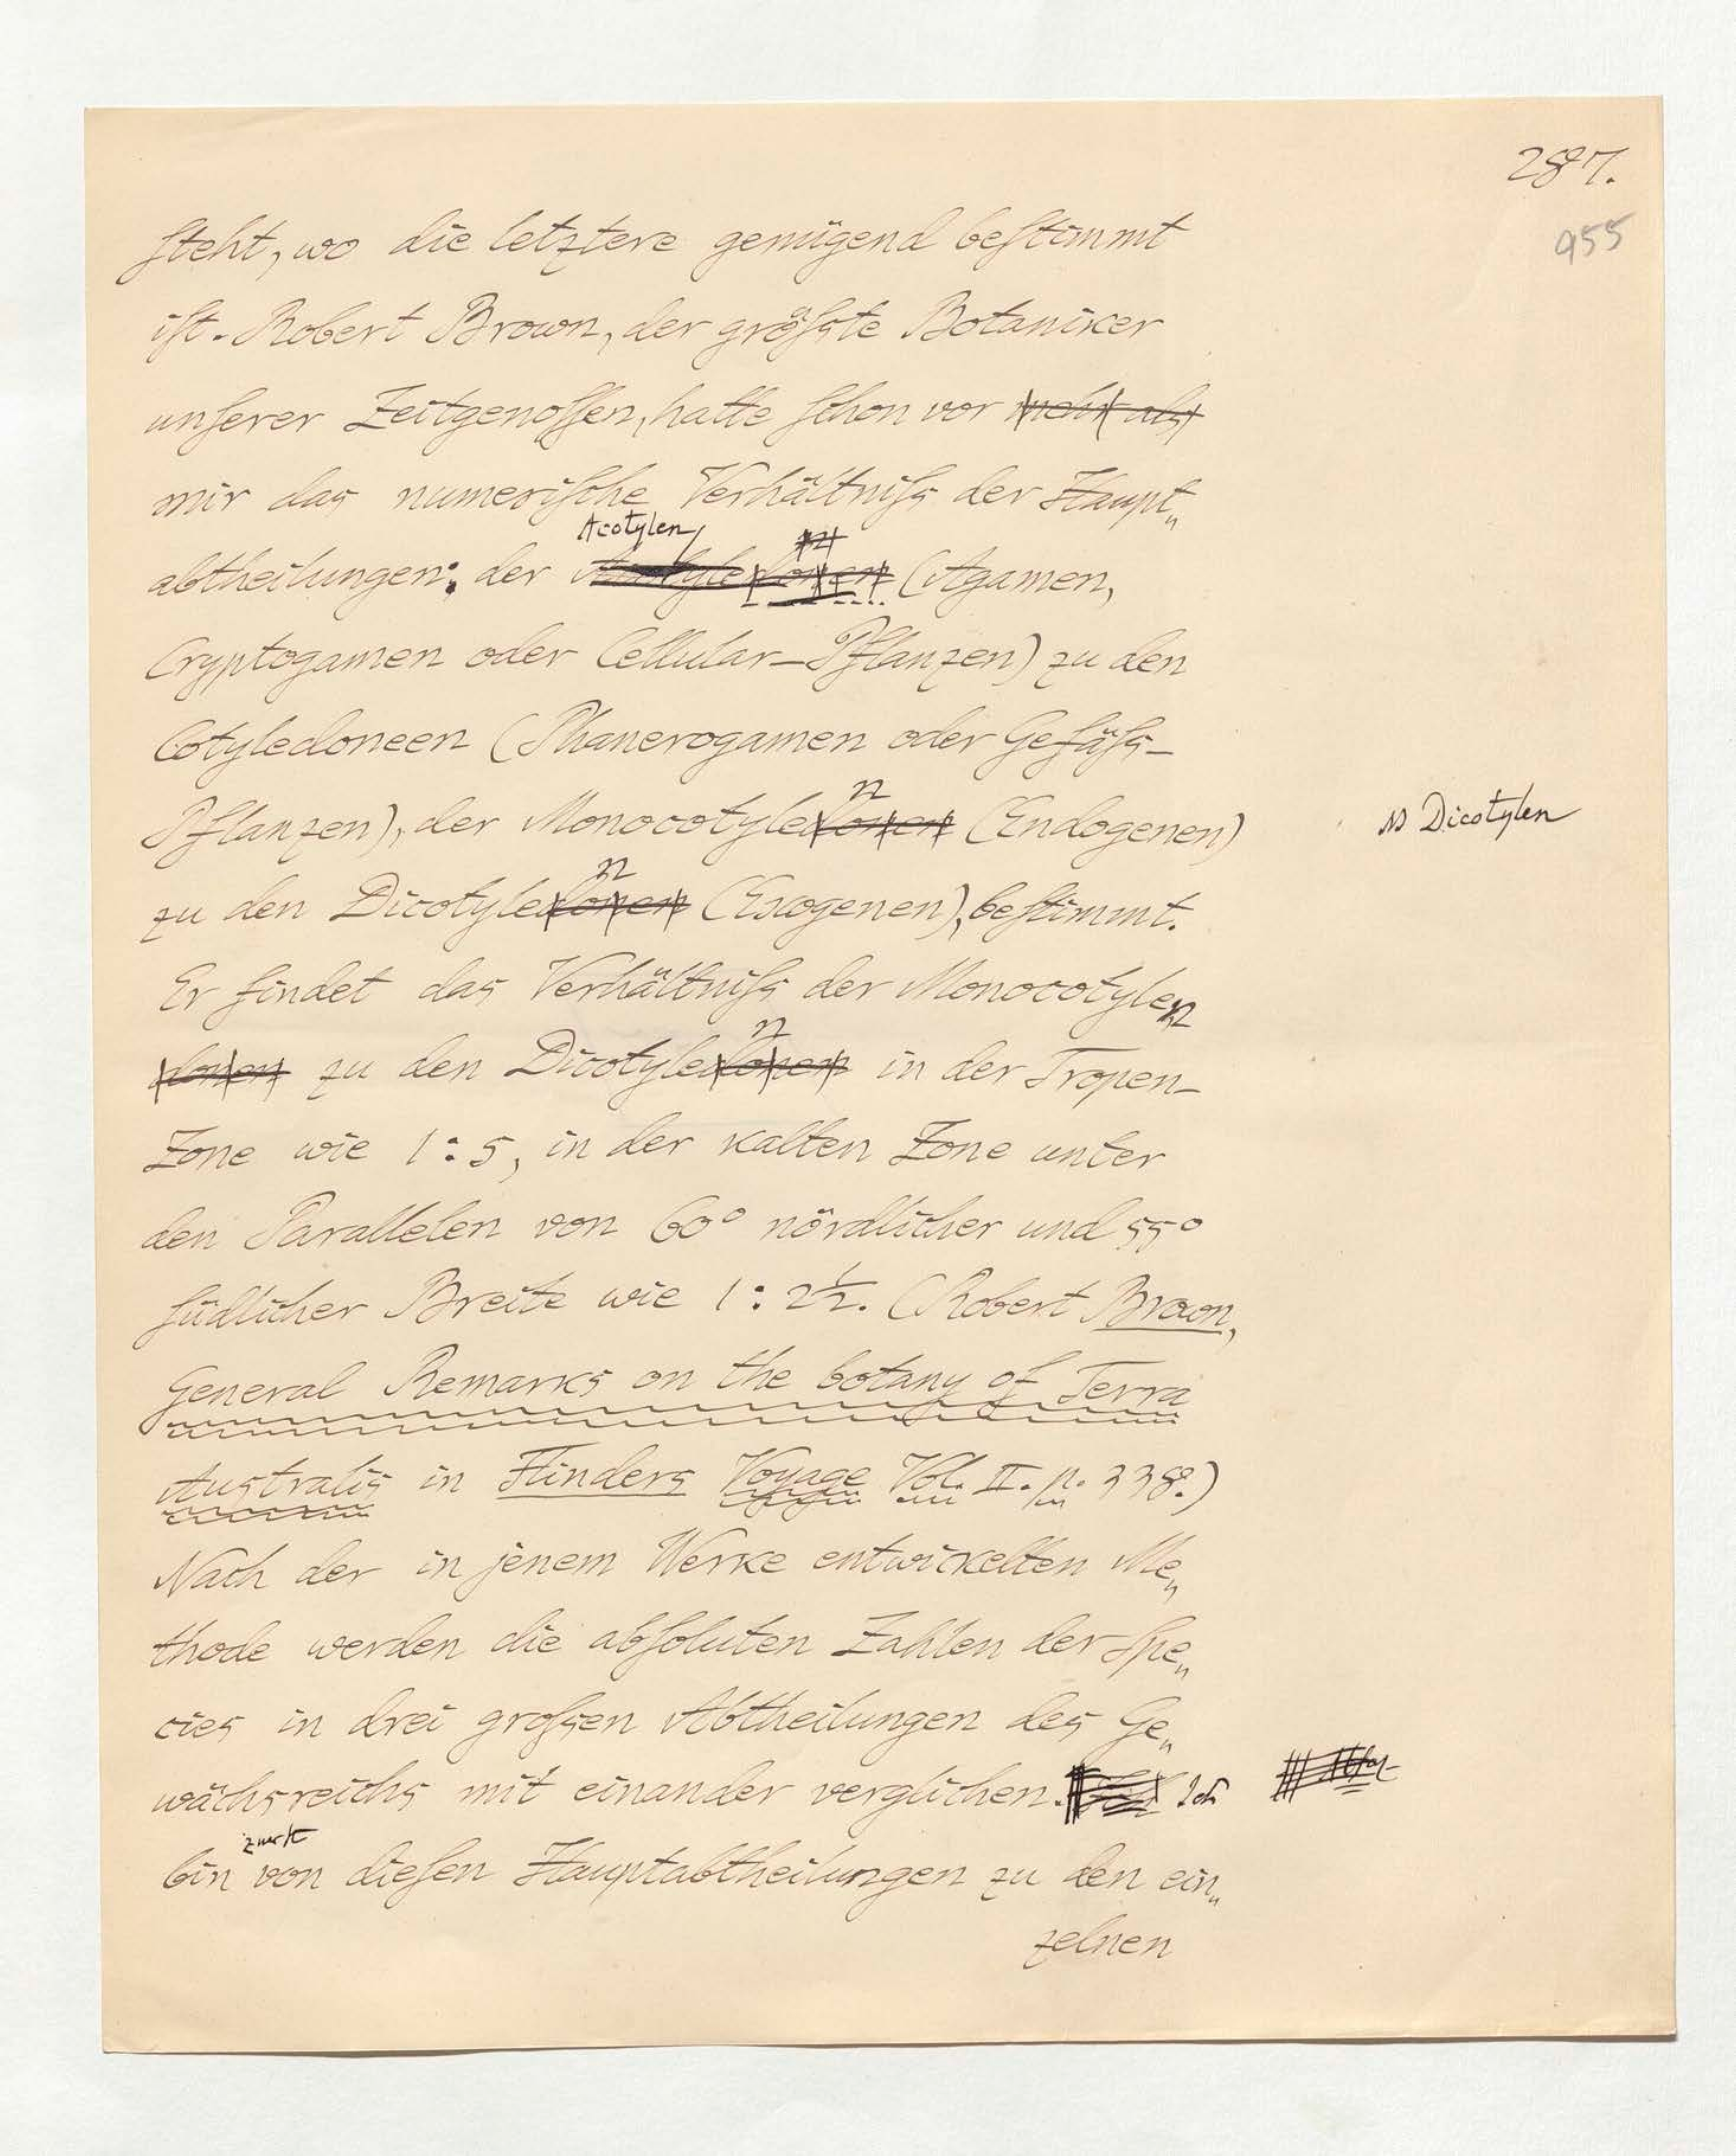 287.
955
ſteht, wo die letztere genügend beſtimmt
iſt. Robert Brown, der gröſste Botaniker
unſerer Zeitgenoſſen, hatte ſchon vor mehr als
mir das numeriſche Verhältniſs der Haupt„
Acotylen
abtheilungen: der Acotyledonen (Agamen,
Cryptogamen oder Cellular-Pflanzen) zu den
Cotyledoneen (Phanerogamen oder Gefäſs-
n
Pflanzen), der Monocotyledonen (Endogenen)
Dicotylen
n
zu den Dicotyledonen (Exogenen), beſtimmt.
Er findet das Verhältniſs der Monocotylen
n
donen zu den Dicotyledonen in der Tropen-
Zone wie 1:5, in der kalten Zone unter
den Parallelen von 60° nördlicher und 55°
ſüdlicher Breite wie 1:2½. (Robert Brown,
General Remarks on the botany of Terra
Australis in Flinders Voyage Vol. II. p. 338.)
Nach der in jenem Werke entwickelten Me„
thode werden die abſoluten Zahlen der Spe„
cies in drei groſsen Abtheilungen des Ge„
wächsreichs mit einander verglichen. Ich
zuerſt
bin von dieſen Hauptabtheilungen zu den ein„
zelnen